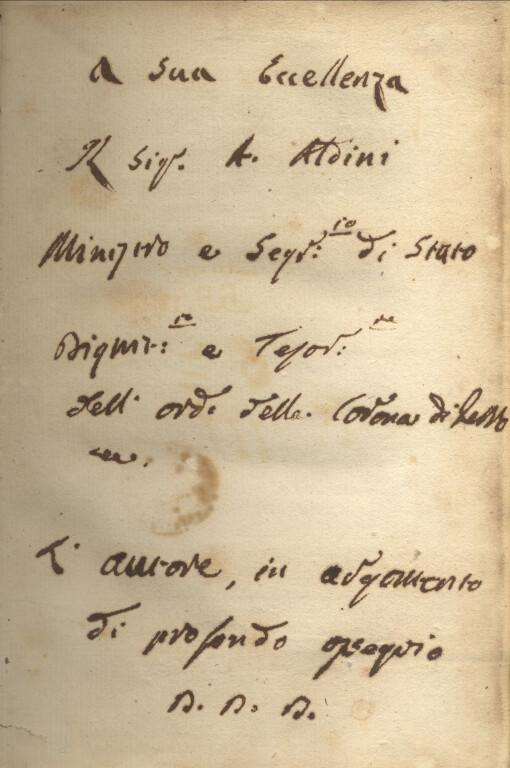 A Sua Eccellenza
Il Sigr. A. Aldini
Ministro e Segr:io di Stato
Dignit:io e Tesor:re
dell' ord. della Corona di
L' autore, in argomento
di profondo ossequio
D. D. D.